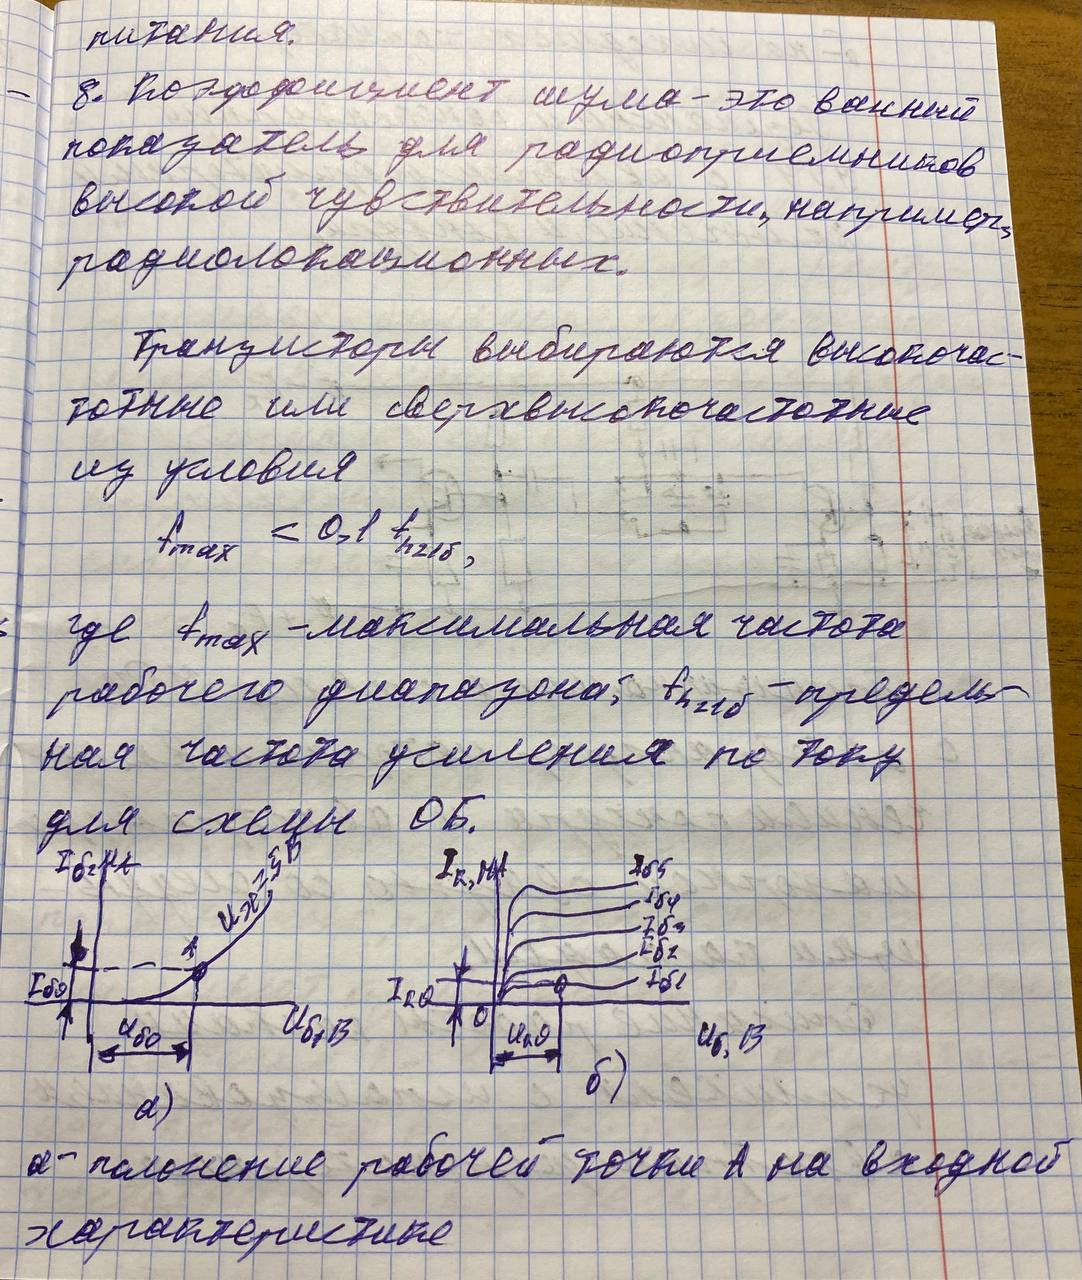 питания.
8. Коэффициент шума - это важный
показатель для радиоприемников
высокой чувствительности, например,
радиолокационных.
Транзисторы выбираются высокочас-
тотные или сверхвысокочастотные
из условия
fmax < 0,1 fh21б,
где fmax - максимальная частота
рабочего диапазона; fh21б - предель-
ная частота усиления по току
для схемы ОБ.
Iб, мА
Uк = 5 В
А
Iб0
Uб, В
Uб0
а)
Iк, мА
Iб5
Iб4
Iб3
Iб2
Iб1
Iк0
0
Uк0
Uб, В
б)
а - положение рабочей точки А на входной
характеристике